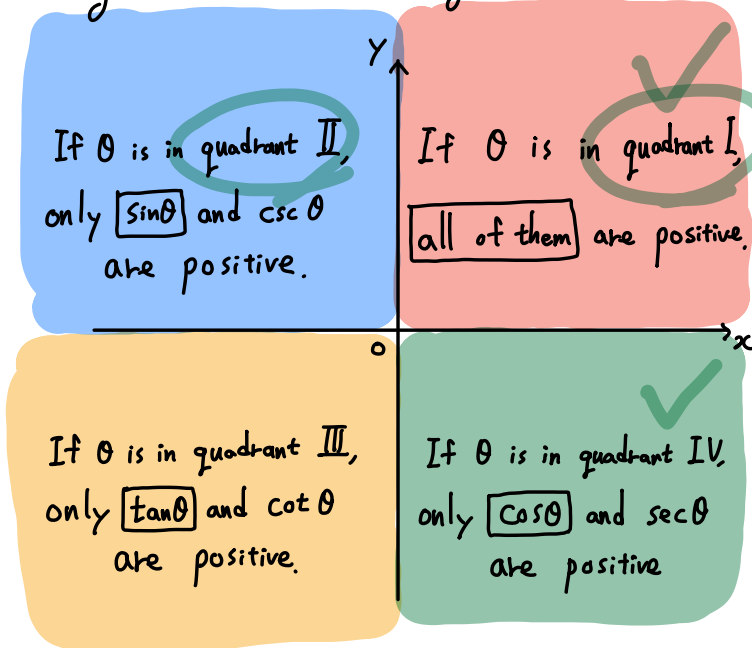 y
If θ is in quadrant II,
only sinθ and csc θ
are positive.
If θ is in quadrant I,
all of them are positive.
0
x
If θ is in quadrant III,
only tanθ and cot θ
are positive.
If θ is in quadrant IV,
only cosθ and secθ
are positive